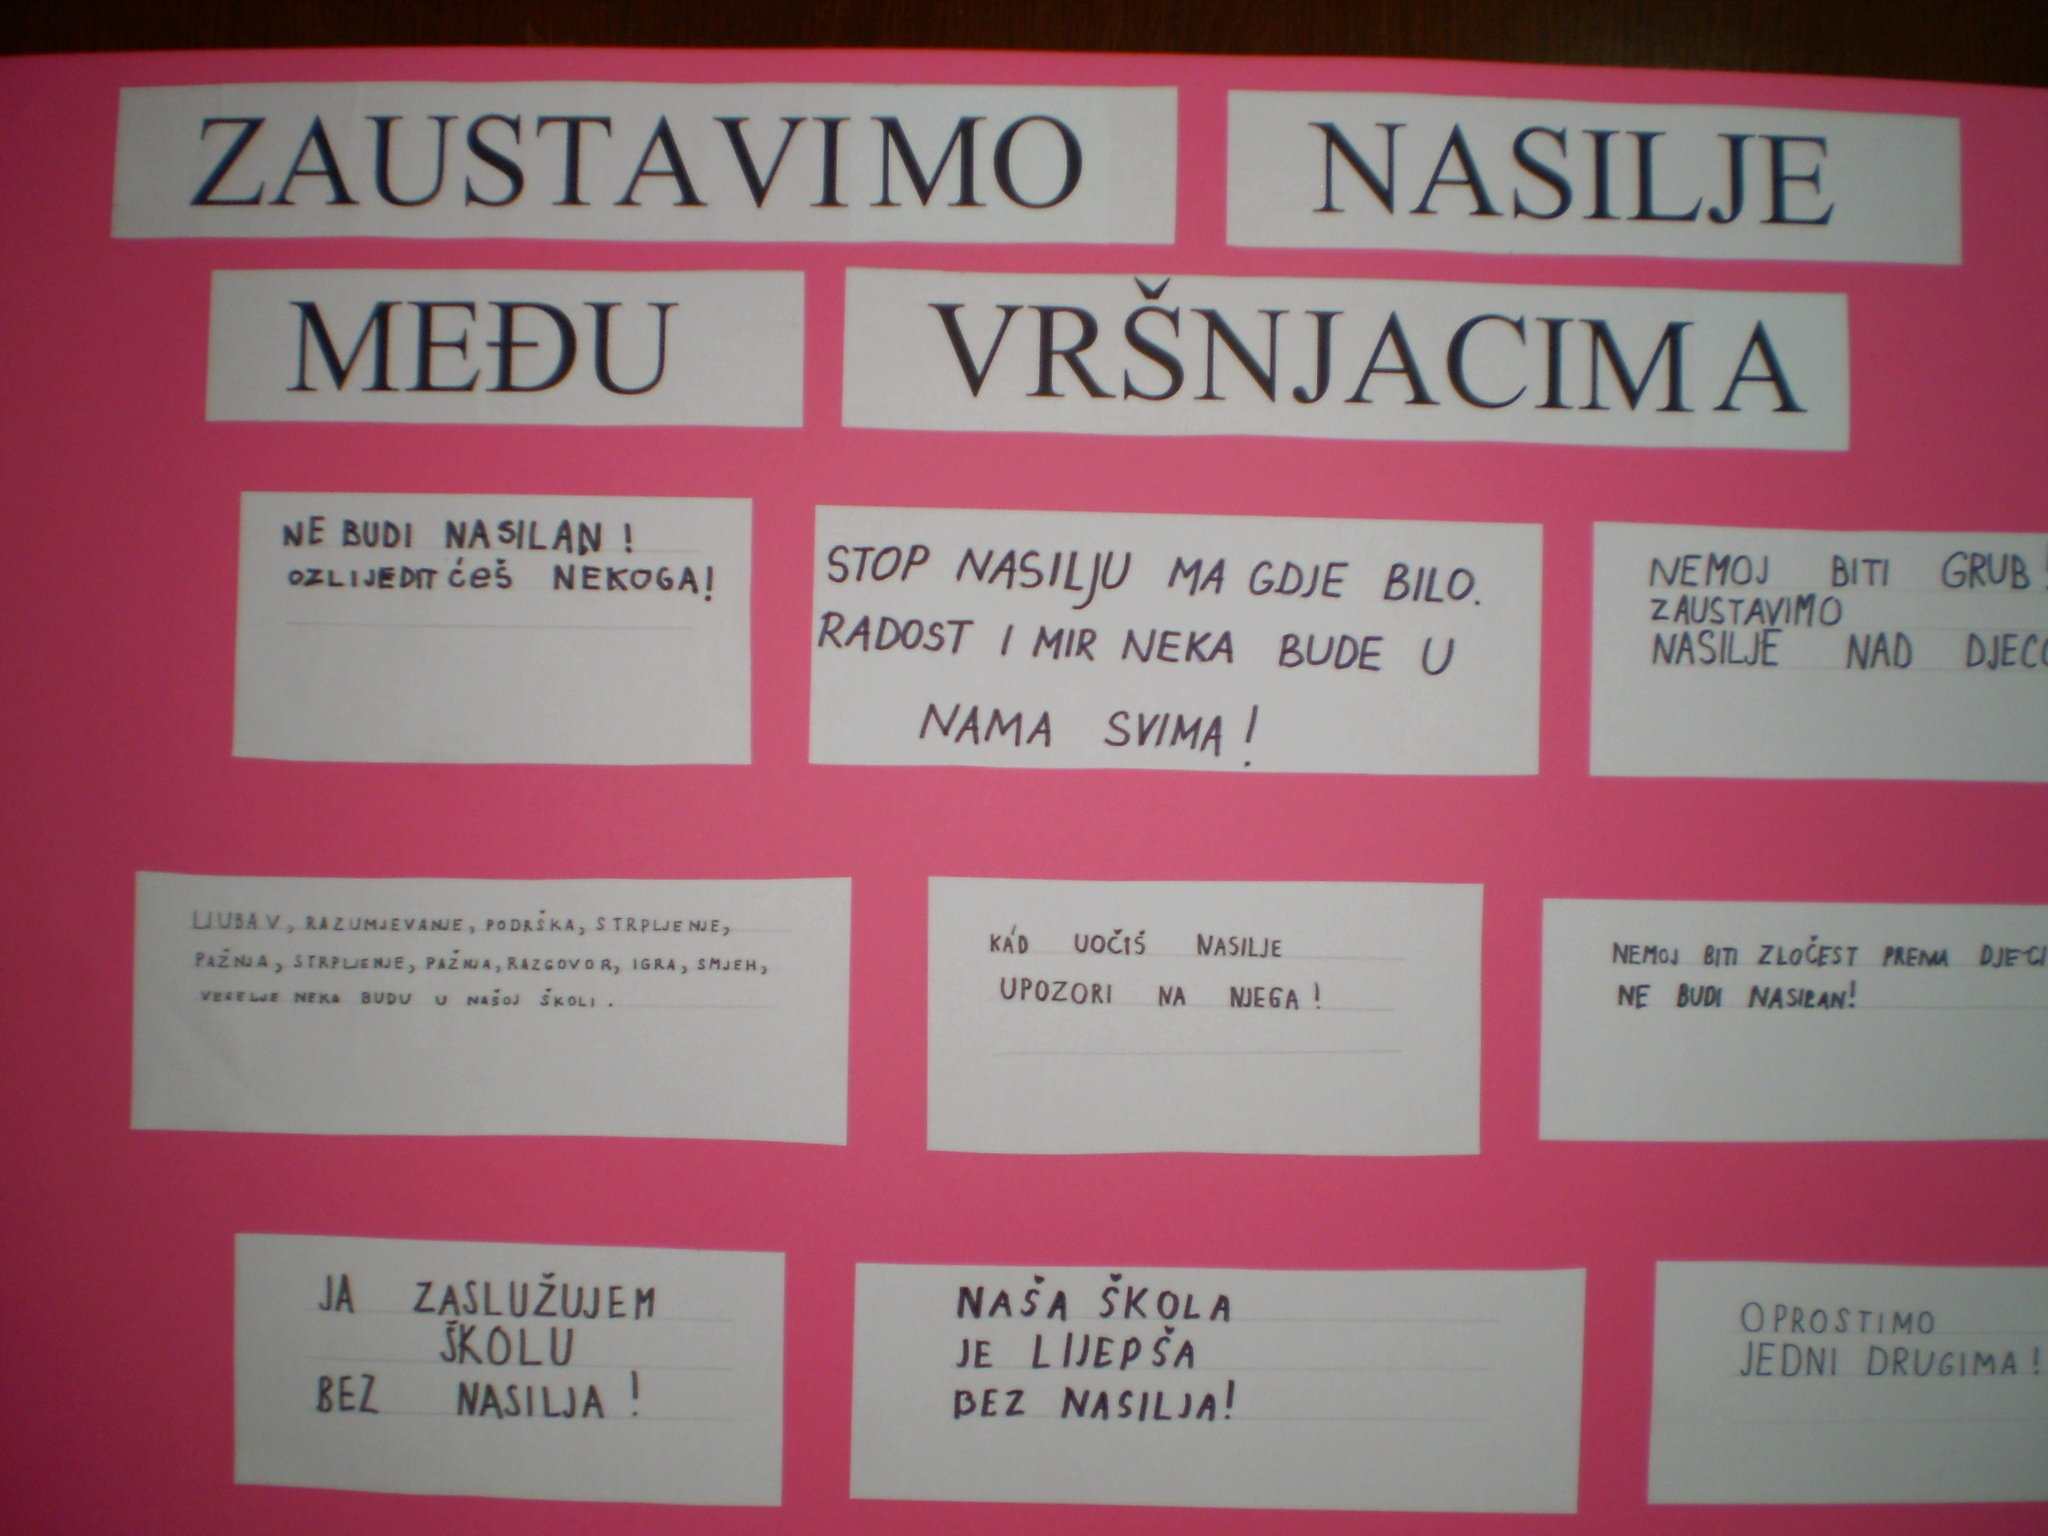 ZAUSTAVIMO NASILJE
MEĐU VRŠNJACIMA
NE BUDI NASILAN !
OZLIJEDIT ćeš NEKOGA!
STOP NASILJU MA GDJE BILO.
RADOST I MIR NEKA BUDE U
NAMA SVIMA!
NEMOJ BITI GRUB!
ZAUSTAVIMO
NASILJE NAD
LJUBAV, RAZUMJEVANJE, PODRŠKA, STRPLJENJE,
PAŽNJA, STRPLJENJE, PAŽNJA, RAZGOVOR, IGRA, SMJEH,
VESELJE NEKA BUDU U NAŠOJ ŠKOLI.
KAD UOČIŠ NASILJE
UPOZORI NA NJEGA!
NEMOJ BITI ZLOČEST PREMA DJECI
NE BUDI NASILAN!
JA ZASLUŽUJEM
ŠKOLU
BEZ NASILJA!
NAŠA ŠKOLA
JE LIJEPŠA
BEZ NASILJA!
OPROSTIMO
JEDNI DRUGIMA!